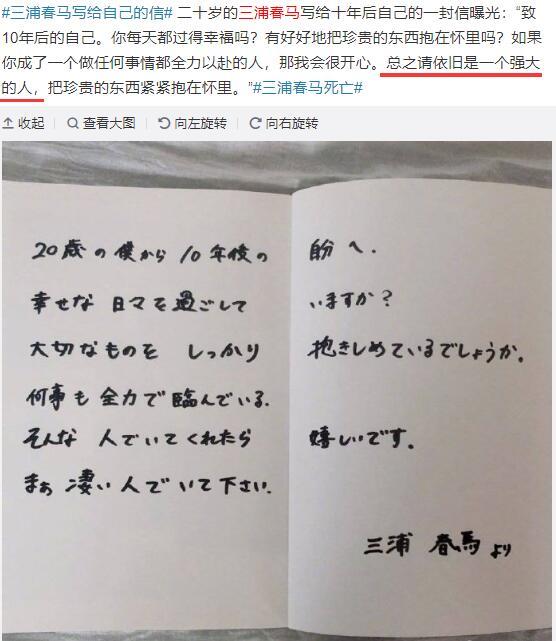 #三浦春马写给自己的信# 二十岁的三浦春马写给十年后自己的一封信曝光：“致
10年后的自己。你每天都过得幸福吗？有好好地把珍贵的东西抱在怀里吗？如果
你成了一个做任何事情都全力以赴的人，那我会很开心。总之请依旧是一个强大
的人，把珍贵的东西紧紧抱在怀里。”#三浦春马死亡#
收起 查看大图 向左旋转 向右旋转
20歳の僕から 10年後の 自分へ.
幸せな 日々を過ごして いますか?
大切なものを しっかり 抱きしめているでしょうか。
何事も 全力で臨んでいる.
そんな 人でいてくれたら 嬉しいです。
まぁ 凄い人でいて下さい.
三浦 春馬 より